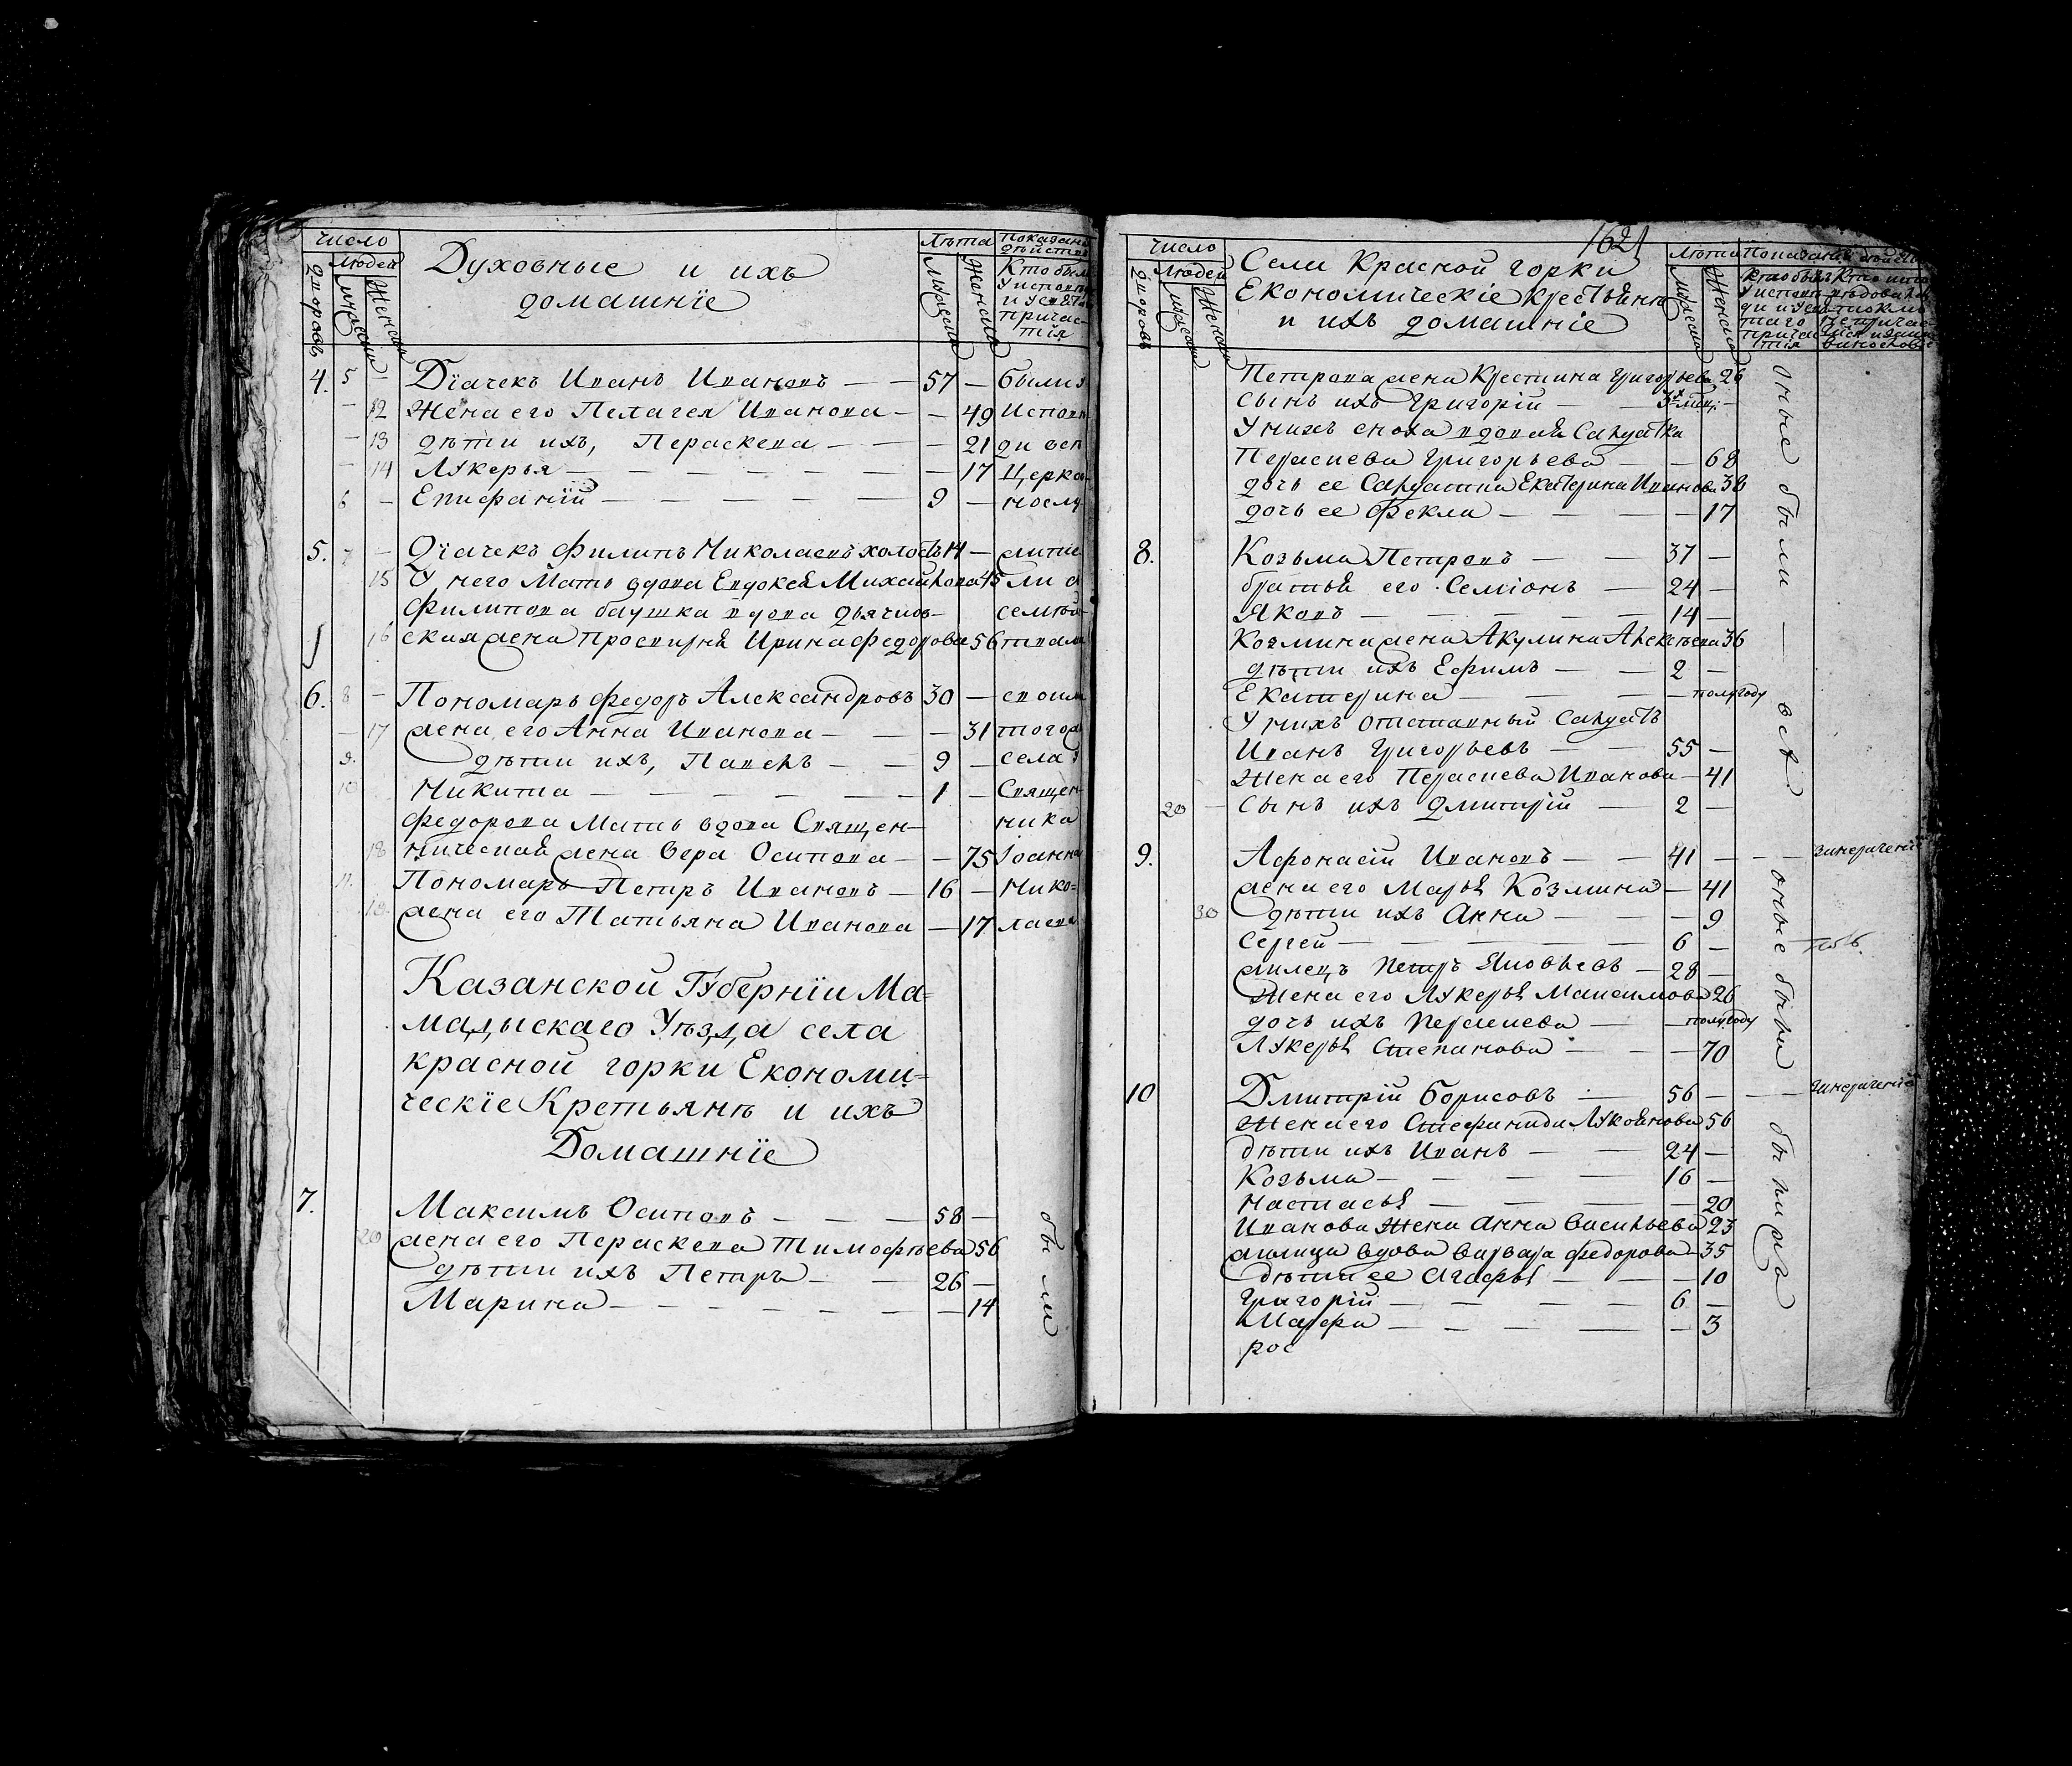 Число
Людей
Дворовъ
Мужеска
Женска
Духовные и ихъ
домашнїе
Лѣта
Мужеска
Женска
4. 5 — Дїачекъ Иванъ Ивановъ — — 57 — были у
— 12 Жена его Пелагея Иванова — — 49 испов
— 13 дѣти ихъ, Пераскева — — — 21 ди всп
— 14 Лукерья — — — — — — — 17 Церко
6 — Епифанїй — — — — — 9 — носл
5. 7 — Дїачекъ Филипъ Николаевъ холостъ 14 —
15 У него Мать вдова Евдокея Михайлова 45
Филипова баушка вдова дьячков-
16 ская жена просвирня Ирина Федорова 56
6. 8 — Пономарь Федоръ Александровъ 30 — своим
— 17 жена его Анна Иванова — — — 31 тогож
9. дѣти ихъ, Павелъ — — 9 — села
10 Никита — — — — — — 1 — Священ-
Федорова Мать вдова Священ- ника
18 ническая жена Вера Осипова — — 75 Іоанна
11. Пономарь Петръ Ивановъ — 16 — Нико-
19. жена его Татьяна Иванова — 17 лаева
Казанской Губернїи Ма-
мадыскаго Уѣзда села
красной горки Економи-
ческїе Кретьянѣ и ихъ
Домашнїе
7. Максимъ Осиповъ — — — 58 —
20 жена его Пераскева Тимофѣева 56
дѣти ихъ Петръ — — 26 —
Марина — — — — — — — 14
были
1621
Число
Людей
Дворовъ
Мужеска
Женска
Села Красной горки
Економическіе крестьянѣ
и ихъ домашніе
Лѣта
Мужеска
Женска
Петрова жена Крестина Григорьева 26
сынъ ихъ Григорій — — 3х мѣсц: —
У нихъ сноха вдовая Салдатка
Пераскева Григорьева — — 68
дочь ее Салдатка Екатерина Иванова 38
дочь ее Фекла — — — — 17
8. Козьма Петровъ — — 37 —
братья его Семіонъ — 24 —
Яковъ — — — — 14 —
Козмина жена Акулина Алексѣева 36
дѣти ихъ Ефимъ — — 2 —
Екатерина — — — — полугоду
У нихъ отставный Салдатъ
Иванъ Григорьевъ — — 55 —
Жена его Пераскева Иванова — 41
20 — сынъ ихъ Дмитрій — 2 —
9. Афонасій Ивановъ — — 41 — — —
жена его Марья Козмина — 41
30 дѣти ихъ Анна — — — 9
Сергей — — — — — 6 —
жилецъ Петръ Яковлевъ — 28 —
Жена его Лукерья Максимова 26
дочь ихъ Пераскева — — полугоду
Лукерья Степанова — — — 70
10 Дмитрій Борисовъ — 56 — — —
Жена его Стефанида Лукоянова 56
Дѣти ихъ Иванъ — — 24 —
Козьма — — — — 16 —
Настасья — — — — 20
Иванова Жена Анна Васильева 23
жилица вдова Варвара Федорова 35
Дѣти ее Агафья — — — 10
Григорій — — — — 6 —
Марфа — — — — — 3
рос
оные были — всѣ — оные были —